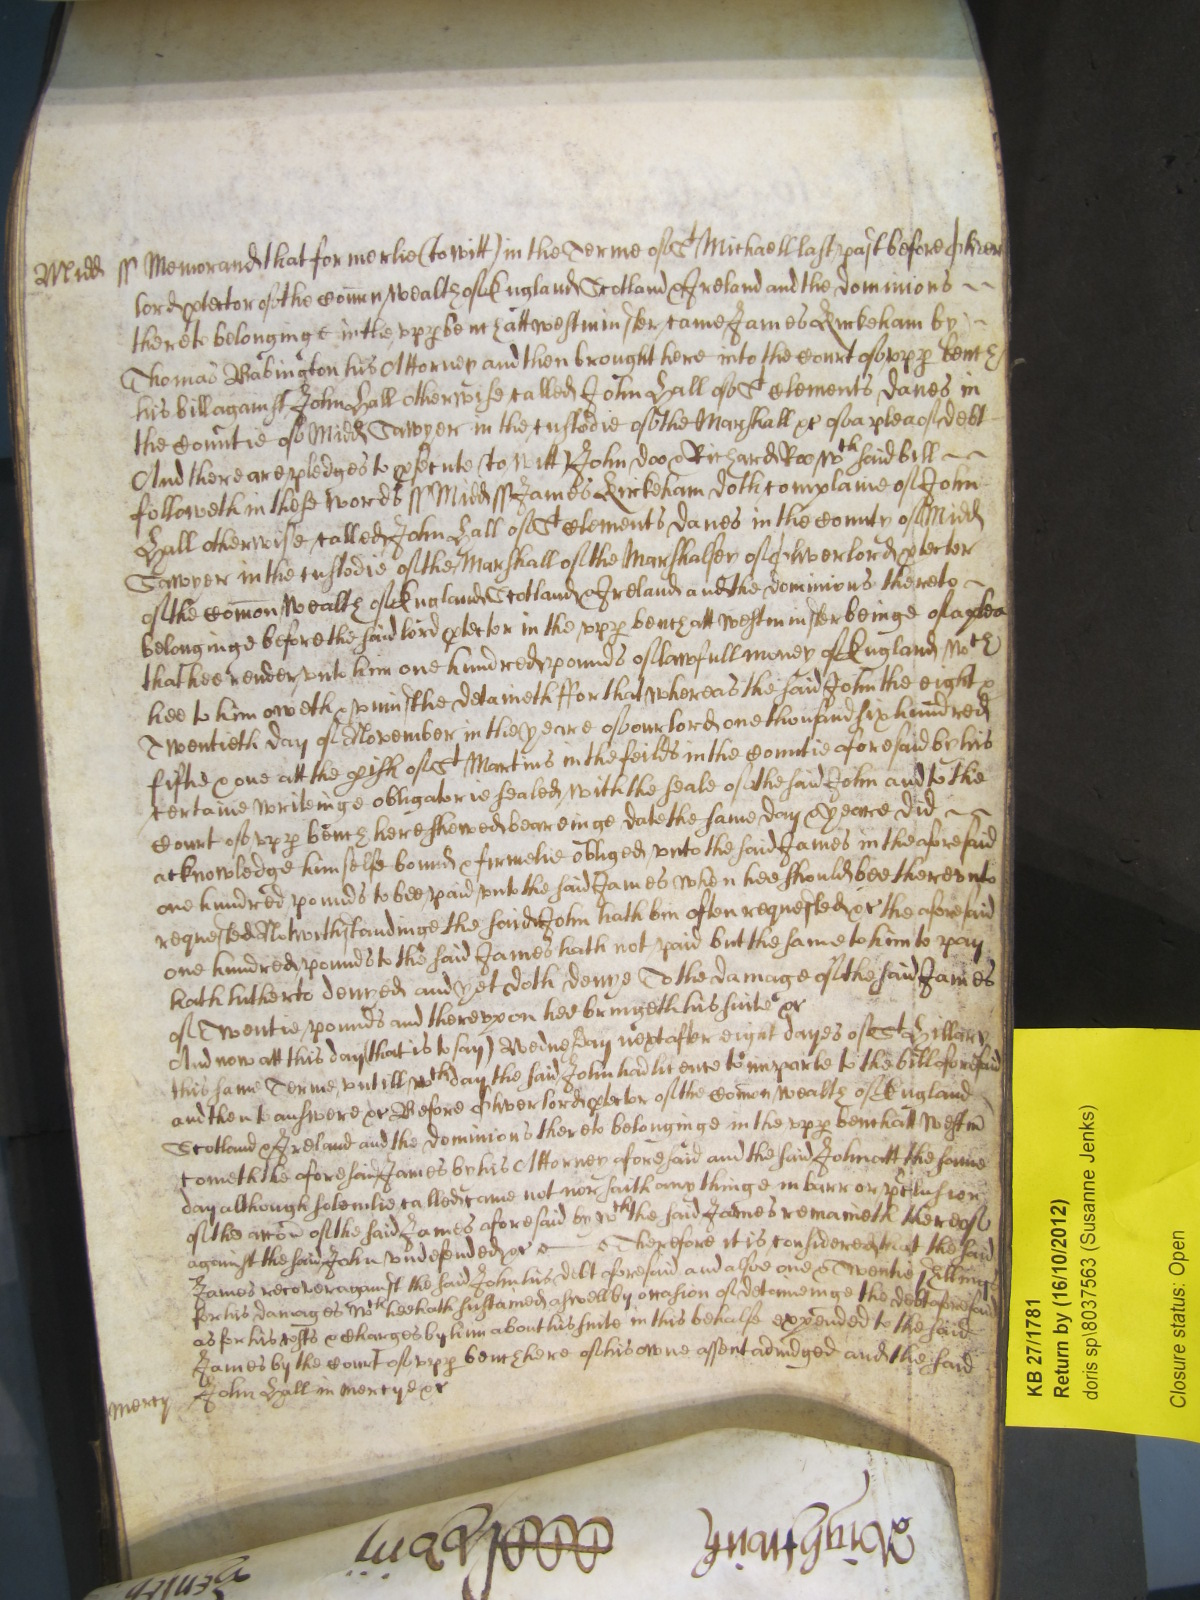 Midd ss Memorand that formerlie (to witt) in the Terme of St Michaell last past before Oliver
lord ptector of the Comon Wealth of England Scotland & Ireland and the dominions
thereto belonginge in the upp bench att westminster came James Kirkeham by
Thomas Babington his Attorney and then brought here into the Court of upp bench
his bill against John Hall otherwise called John Hall of St Clements Danes in
the Countie of Midd Sawyer in the custodie of the Marshall &c of a plea of debt
And there are pledges to psecute to witt John doo & Richard Roo wch said bill
followeth in these words ss Midd ss James Kirkeham doth complaine of John
Hall otherwise called John Hall of St Clements Danes in the County of Midd
Sawyer in the custodie of the Marshall of the Marshalsey of Oliver lord ptector
of the Comon Wealth of England Scotland & Ireland and the dominions thereto
belonginge before the said lord ptector in the upp bench att westminster beinge of a plea
that hee render unto him one hundred pounds of lawfull money of England wch
hee to him oweth & uniustlie detaineth ffor that whereas the said John the eight &
Twentieth day of November in the yeare of our lord one thousand six hundred
fiftie & one att the pish of St Martins in the feilds in the Countie aforesaid by his
certaine writeinge obligatorie sealed with the seale of the said John and to the
Court of upp bench here shewed beareinge date the same day & yeare did
acknowledge himselfe bound & firmelie obliged unto the said James in the aforesaid
one hundred pounds to bee paid unto the said James when hee should bee thereunto
requested Notwithstandinge the said John hath bin often requested &c the aforesaid
one hundred pounds to the said James hath not paid but the same to him to pay
hath hitherto denyed and yet doth denye To the damage of the said James
of Twentie pounds and thereupon hee bringeth his suite &c
And now att this day (that is to say) Wednesday next after eight dayes of St Hillary
this same Terme untill wch day the said John had licence to imparle to the bill aforesaid
and then to answere &c Before Oliver lord ptector of the Comon Wealth of England
Scotland & Ireland and the dominions thereto belonginge in the upp bench att Westm
cometh the aforesaid James by his Attorney aforesaid and the said John att the same
day although solemlie called came not nor saith any thinge in barr or pclusion
of the accon of the said James aforesaid by wch the said James remaineth thereof
against the said John undefended &c Therefore it is considered that the said
James recover against the said John his debt aforesaid and alsoe one & Twentie shillings
for his damages wch hee hath sustained aswell by occasion of detaineinge the debt aforesaid
as for his costs & charges by him about his suite in this behalfe expended to the said
James by the Court of upp bench here of his owne assent adiudged and the said
John Hall in mercye &c
mercy
KB 27/1781
Return by (16/10/2012)
doris sp\8037563 (Susanne Jenks)
Closure status: Open